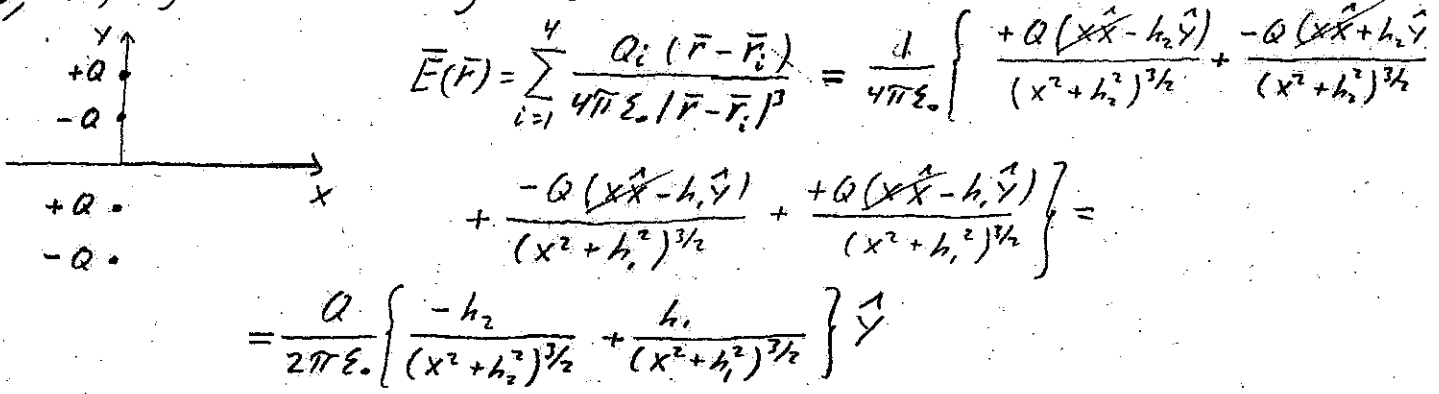 Y
+Q
-Q
X
+Q
-Q
Ē(r̄) = Σ_{i=1}^{4} Qi (r̄ - r̄i) / 4πε₀|r̄ - r̄i|³ = 1/4πε₀ { +Q(xx̂ - h₂ŷ) / (x² + h₂²)^{3/2} + -Q(xx̂ + h₂ŷ / (x² + h₂²)^{3/2}
+ -Q(xx̂ - h₁ŷ) / (x² + h₁²)^{3/2} + +Q(xx̂ - h₁ŷ) / (x² + h₁²)^{3/2} } =
= Q/2πε₀ { -h₂ / (x² + h₂²)^{3/2} + h₁ / (x² + h₁²)^{3/2} } ŷ